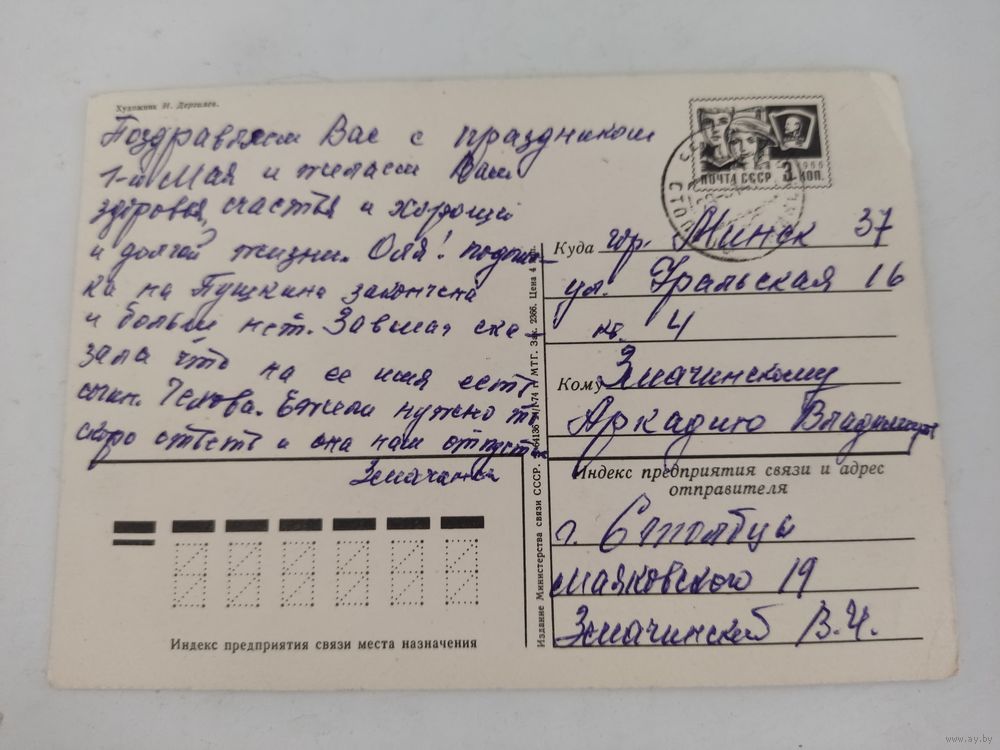 Художник И. Дергилев.
Поздравляем Вас с праздником
1-й Мая и желаем Вам
здоровья, счастья и хорошей
и долгой жизни. Оля! подпис-
ка на Пушкина закончена
и больше нет. Завмаг ска-
зала что на ее имя есть
сочин. Чехова. Ежели нужно то
скоро ответь и она нам отпустит
Змачинск
ПОЧТА СССР 3 КОП.
1966
Куда гор. Минск 37
ул. Уральская 16
кв. 4
Кому Змачинскому
Аркадию Владимир
Индекс предприятия связи и адрес
отправителя
г. Столбцы
Маяковского 19
Змачинский В.И.
Издание Министерства связи СССР. 74 г. МТГ. Зак. 2366. Цена 4 коп.
Индекс предприятия связи места назначения
www.ay.by